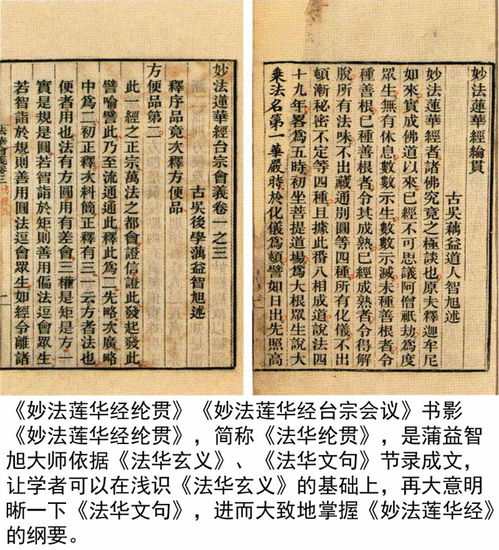 妙法蓮華經綸貫
古吳蕅益道人智旭述
妙法蓮華經者諸佛究竟之極談也原夫釋迦牟尼
如來實成佛道以來已經不可思議阿僧祇劫為度
眾生無有休息數數示生數數示滅未種善根者令
種善根已種善根者令其成熟已經成熟者令得解
脫所有法味不出藏通別圓等四種所有化儀不出
頓漸秘密不定等四種且據此番八相成道說法四
十九年畧為五時初坐菩提道場為大根眾生說大
乘法名第一華嚴時於化儀為頓譬如日出先照高
妙法蓮華經台宗會義卷一之三
古吳後學蕅益智旭述
釋序品竟次釋方便品
方便品第二
此一經之正宗萬法之都會證信證此發起發此
譬喻譬此乃至流通通此釋此為二先略次廣略
中為二初正釋次料簡正釋有三一云方者法也
便者用也法有方圓用有差會三種是矩是方一
實是規是圓若智詣於矩則善用偏法逗會眾生
若智詣於規則善用圓法逗會眾生如經令離諸
《妙法莲华经纶贯》《妙法莲华经台宗会议》书影
《妙法莲华经纶贯》，简称《法华纶贯》，是蒲益智
旭大师依据《法华玄义》、《法华文句》节录成文，
让学者可以在浅识《法华玄义》的基础上，再大意明
晰一下《法华文句》，进而大致地掌握《妙法莲华经》
的纲要。